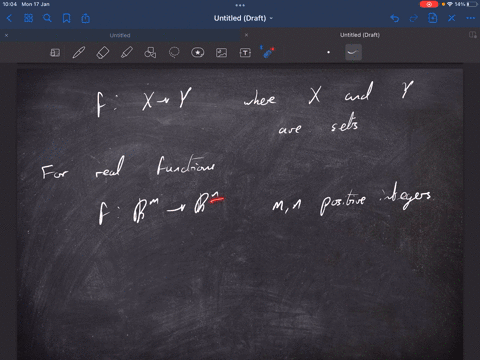 10:04 Mon 17 Jan
14%
Untitled (Draft)
Untitled
Untitled (Draft)
f: X → Y where X and Y
are sets
For real functions
f: ℝᵐ → ℝⁿ m, n positive integers